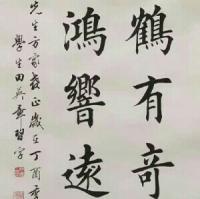 鶴有奇
鴻響遠
先生方家教正歲在丁酉季
學生田英章習字